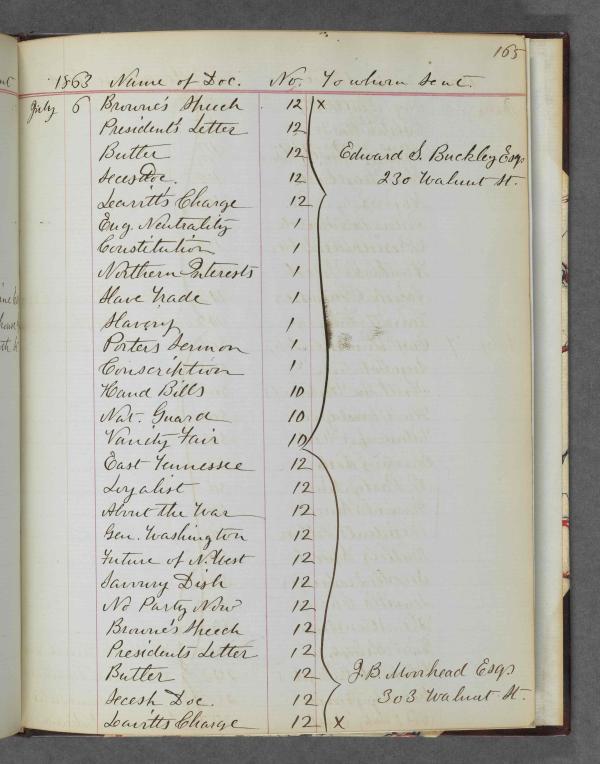 165
1863 Name of Doc. No. To whom sent.
July 6 Browne's Speech 12 x
President's Letter 12
Butler 12 Edward S. Buckley Esqr
Secesh Doc. 12 230 Walnut St.
Leavitt's Charge 12
Eng. Neutrality 1
Constitution 1
Northern Interests 1
Slave Trade 1
Slavery 1
Porters Sermon 1
Conscription 1
Hand Bills 10
Nat. Guard 10
Vanity Fair 10
East Tennessee 12
Loyalist 12
About the War 12
Gen. Washington 12
Future of N. West 12
Savoury Dish 12
No Party Now 12
Browne's Speech 12
Presidents Letter 12
Butler 12 J.B. Moorhead Esqr
Secesh Doc. 12 303 Walnut St.
Leavitts Charge 12 x